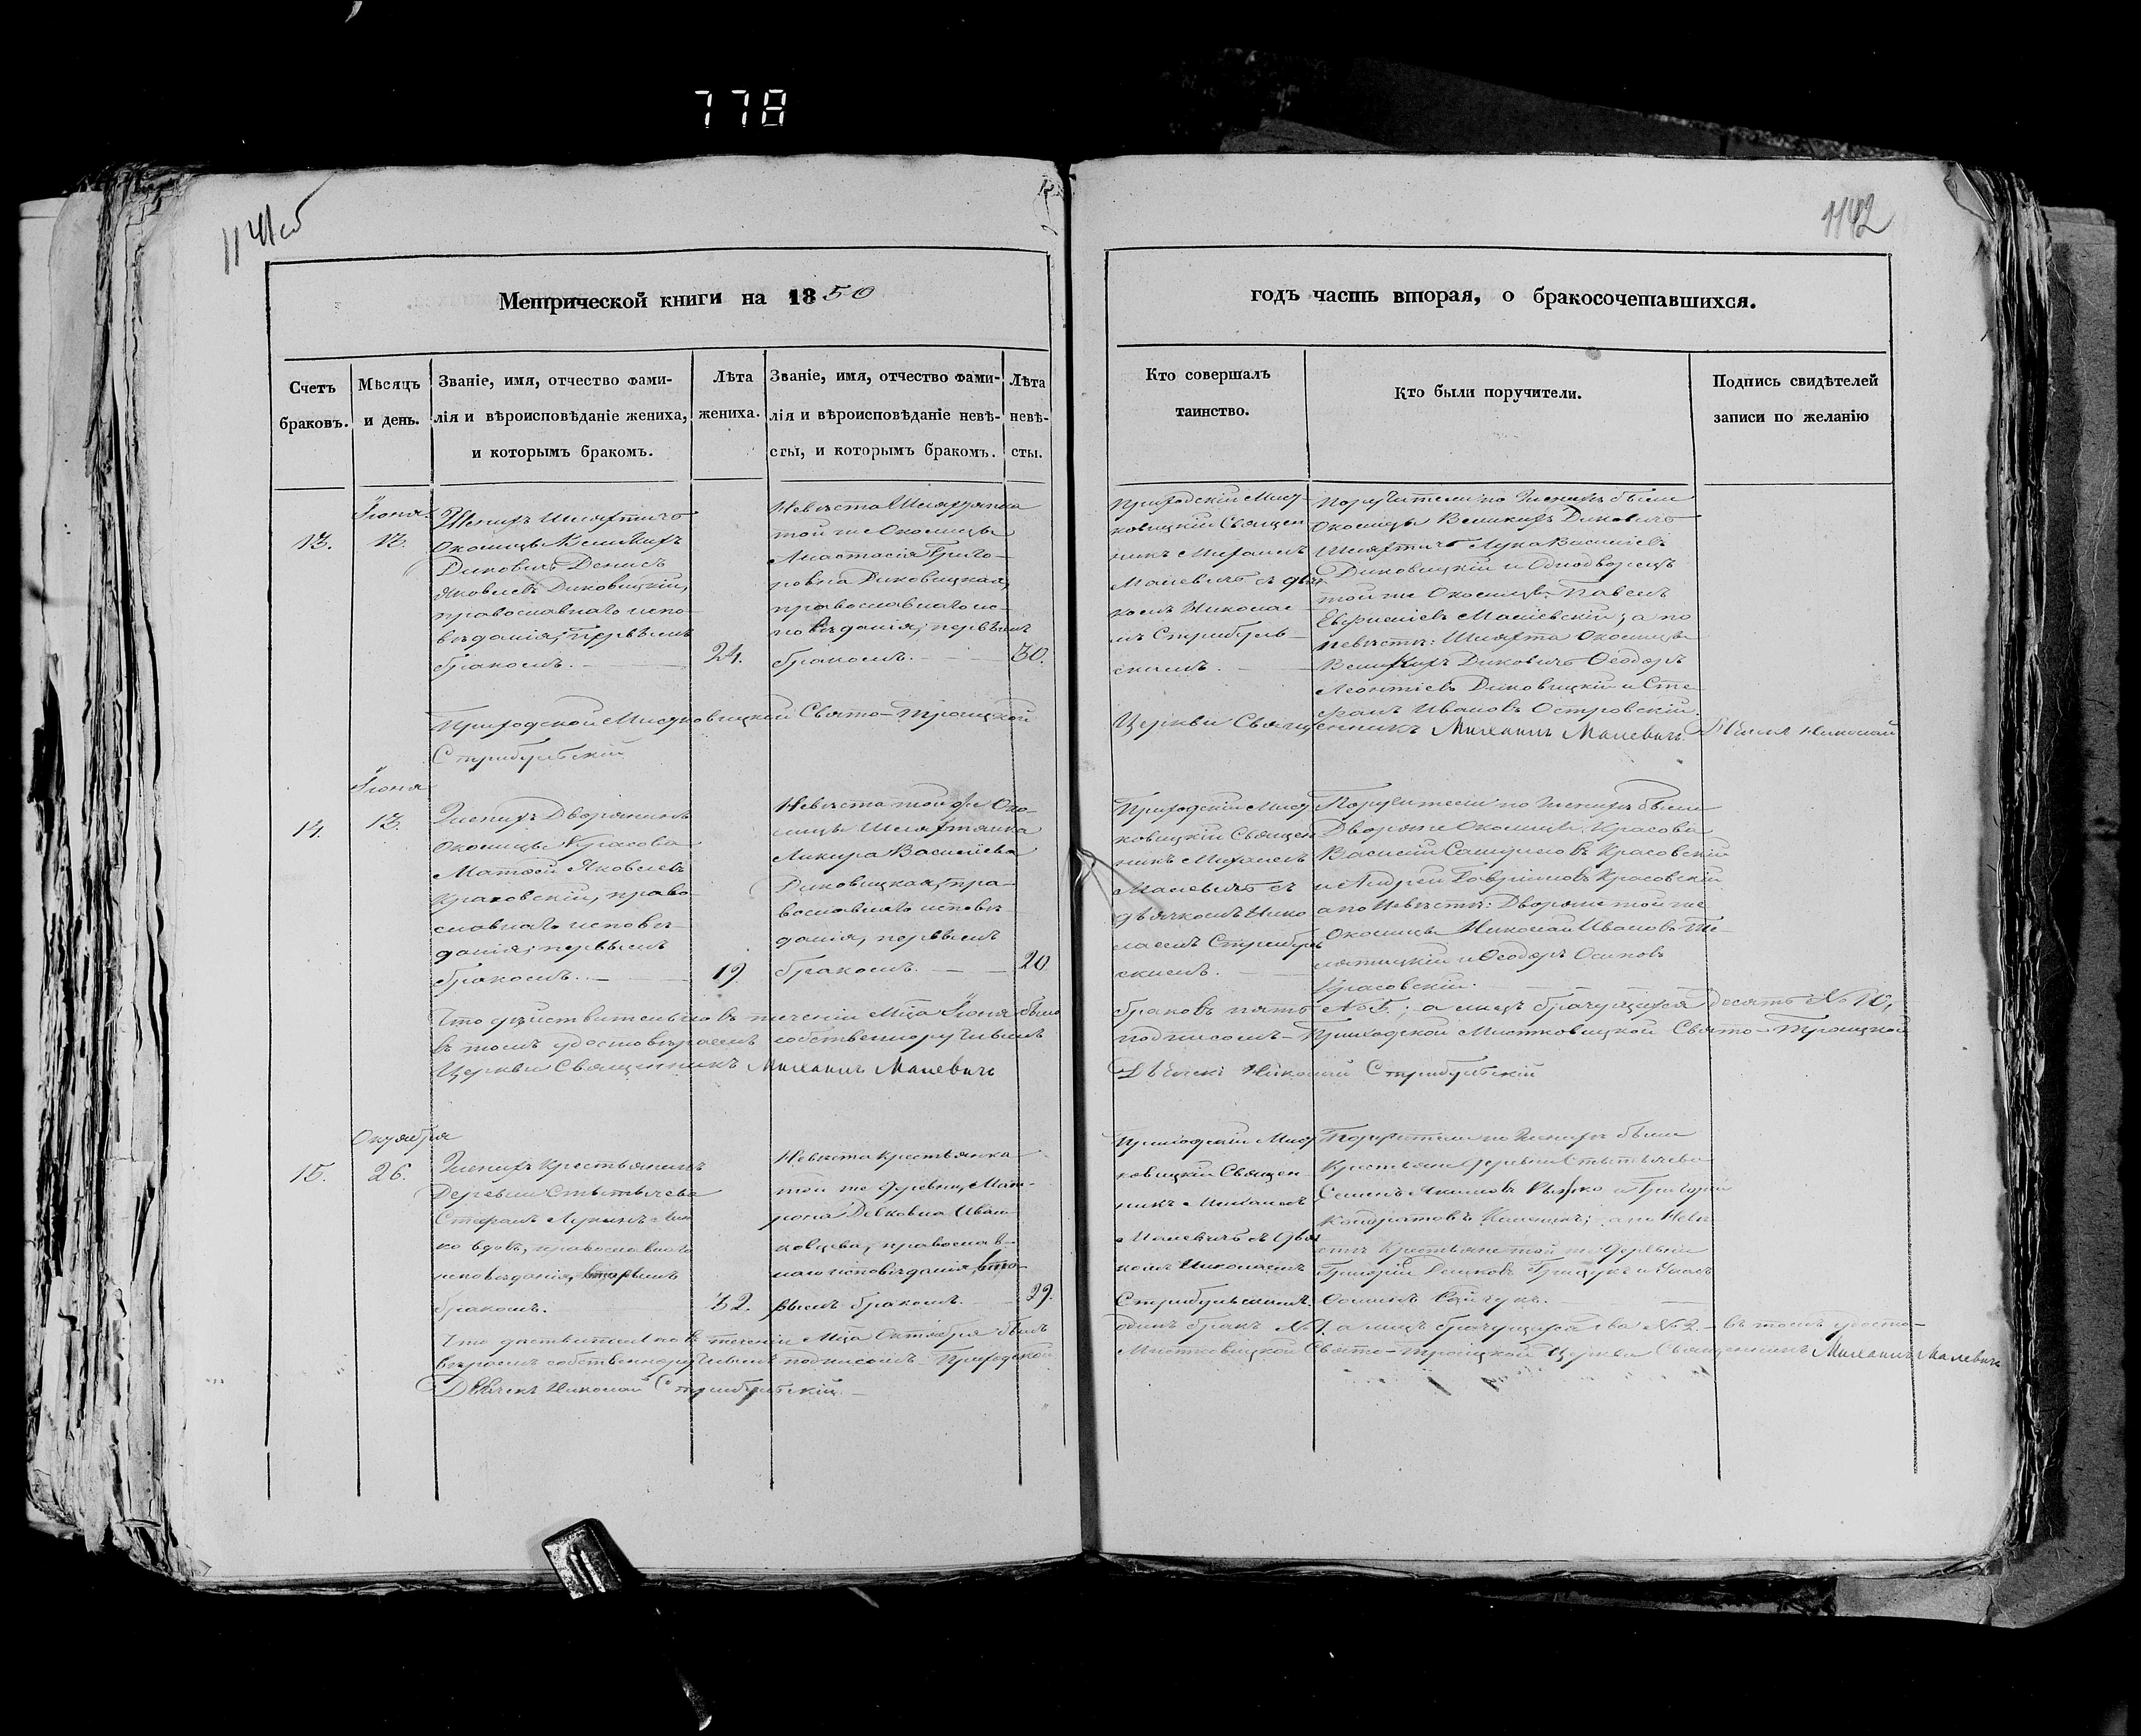 778
1141об
1142
Метрической книги на 1850
годъ часть вторая, о бракосочетавшихся.
Счетъ
браковъ.
Мѣсяцъ
и день.
Званіе, имя, отчество фами-
лія и вѣроисповѣданіе жениха,
и которымъ бракомъ.
Лѣта
жениха.
Званіе, имя, отчество фами-
лія и вѣроисповѣданіе невѣ-
сты, и которымъ бракомъ.
Лѣта
невѣ-
сты.
Кто совершалъ
таинство.
Кто были поручители.
Подпись свидѣтелей
записи по желанію
13.
Іюня
12.
Женихъ Шляхтичъ
Околицы Великихъ
Диковичъ Денисъ
Яковлевъ Диковицкій,
православнаго испо-
вѣданія, первымъ
бракомъ.
24.
Невѣста Шляхтянка
той же Околицы
Анастасія Григо-
ровна Диковицкая,
православнаго ис-
повѣданія, первымъ
бракомъ.
30.
Приходскій Мист-
ковицкій Священ
никъ Михаилъ
Малевичъ съ дьяч
комъ Никола
емъ Стрибуль-
скимъ.
Поручители по Женихѣ были
Околицы Великихъ Диковичъ
Шляхтичъ Лука Василіевъ
Диковицкій и Однодворецъ
той же Околицы Павелъ
Евфиміевъ Маліевскій; а по
невѣстѣ: Шляхта Околицы
Великихъ Диковичъ Ѳеодоръ
Леонтіевъ Диковицкій и Сте
фанъ Ивановъ Островскій.
Приходской Мистковицкой Свято-Троицкой
Церкви Священникъ Михаилъ Малевичъ. Дьячекъ Николай
Стрибульскій
14.
Іюня
13.
Женихъ Дворянинъ
Околицы Красова
Матѳей Яковлевъ
Красовскій, право
славнаго исповѣ-
данія, первымъ
бракомъ.
19.
Невѣста той же Око-
лицы Шляхтянка
Василіева
Диковицкая, пра-
вославнаго исповѣ-
данія, первымъ
бракомъ.
20
Приходскій Мист
ковицкій Священ
никъ Михаилъ
Малевичъ съ
дьячкомъ Нико
лаемъ Стрибуль
скимъ.
Поручители по Женихѣ были
Дворяне Околицы Красова
Василій Самуиловъ Красовскій
и Андрей Гавріиловъ Красовскій
а по Невѣстѣ: Дворяне той же
Околицы Николай Ивановъ Те-
и Ѳеодоръ Осиповъ
Красовскій.
Что дѣйствительно въ теченіи Мца Іюня было
браковъ пять №5; а лицъ брачущихся десять №10,
въ томъ удостовѣряемъ собственноручнымъ
подписомъ – Приходской Мистковицкой Свято-Троицкой
Церкви Священникъ Михаилъ Малевичъ
Дьячекъ Николай Стрибульскій
15.
Октября
26.
Женихъ Крестьянинъ
Деревни Стытычева
Стефанъ Лукинъ
ко вдовъ, православнаго
исповѣданія, вторымъ
бракомъ.
32.
Невѣста крестьянка
той же Деревни, Мат-
рона Левковна Иван-
ковцева, православ-
наго исповѣданія вто-
рымъ бракомъ.
29.
Приходскій Мист
ковицкій Священ
никъ Михаилъ
Малевичъ съ дьяч
комъ Николаемъ
Стрибульскимъ.
Поручители по Женихѣ были
Крестьяне Деревни Стытычева
Семенъ Якимовъ и Григорій
Кондратовъ а по Невѣ
стѣ Крестьяне той же Деревни
Григорій Грицукъ и
Что дѣйствительно въ теченіи Мца Октября былъ
одинъ бракъ №1. а лицъ брачущихся два №2. – въ томъ удосто-
вѣряемъ собственноручнымъ подписомъ – Приходской
Мистковицкой Свято-Троицкой Церкви Священникъ Михаилъ Малевичъ
Дьячекъ Николай Стрибульскій